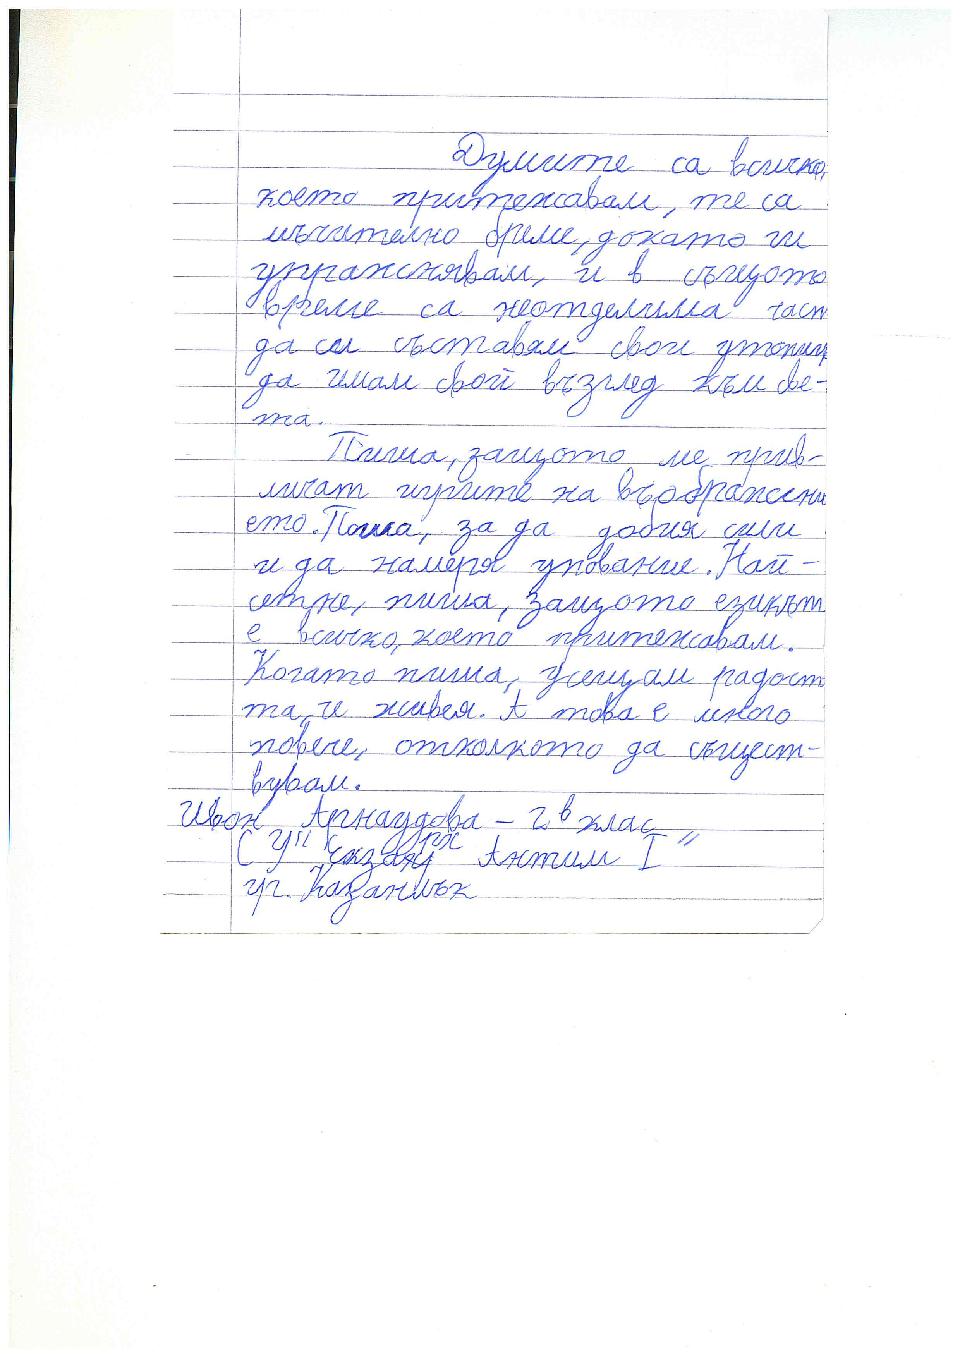 Думите са всичко,
което притежавам, те са
мъчително бреме, докато ги
упражнявам, и в същото
време са неотделима част
да си съставям свои утопии,
да имам свой възглед към све-
та.
Пиша, защото ме прив-
личат игрите на въображени
ето. Пиша, за да добия сили
и да намеря упование. Най-
сетне, пиша, защото езикът
е всичко, което притежавам.
Когато пиша, усещам радост
та, че живея. А това е много
повече, отколкото да същест-
вувам.
Ивон Арнаудова - 12 в клас
СУ " Екзарх Антим I "
гр. Казанлък